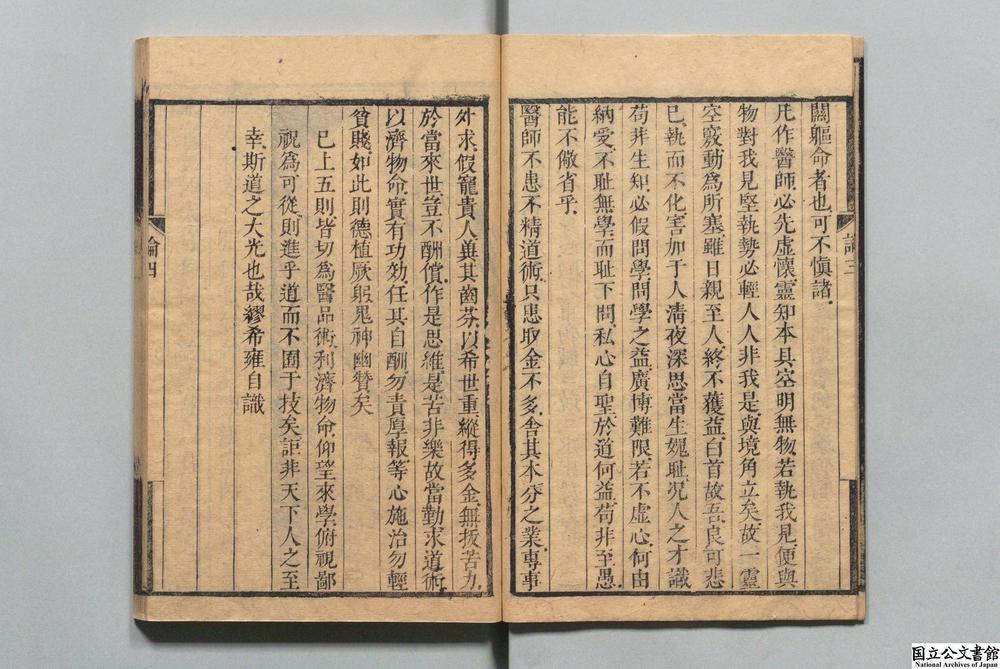 關軀命者也可不慎諸
凡作醫師必先虛懷靈知本具空明無物若執我見便與
物對我見堅執勢必輕人人非我是與境角立矣故一靈
空竅動為所塞雖日親至人終不獲益白首故吾良可悲
已執而不化害加于人清夜深思當生媿耻況人之才識
苟非生知必假問學問學之益廣博難限若不虛心何由
納受不耻無學而耻下問私心自聖於道何益苟非至愚
能不儆省乎
醫師不患不精道術只患取金不多舍其本分之業專事
論三
外求假寵貴人冀其齒芬以希世重縱得多金無拔苦力
於當來世豈不酬償作是思維是苦非樂故當勤求道術
以濟物命實有功効任其自酬勿責厚報等心施治勿輕
貧賤如此則德植厥躬鬼神幽贊矣
已上五則皆切為醫品術利濟物命仰望來學俯視鄙
祝為可從則進乎道而不囿于技矣詎非天下人之至
幸斯道之大光也哉繆希雍自識
論四
国立公文書館
National Archives of Japan